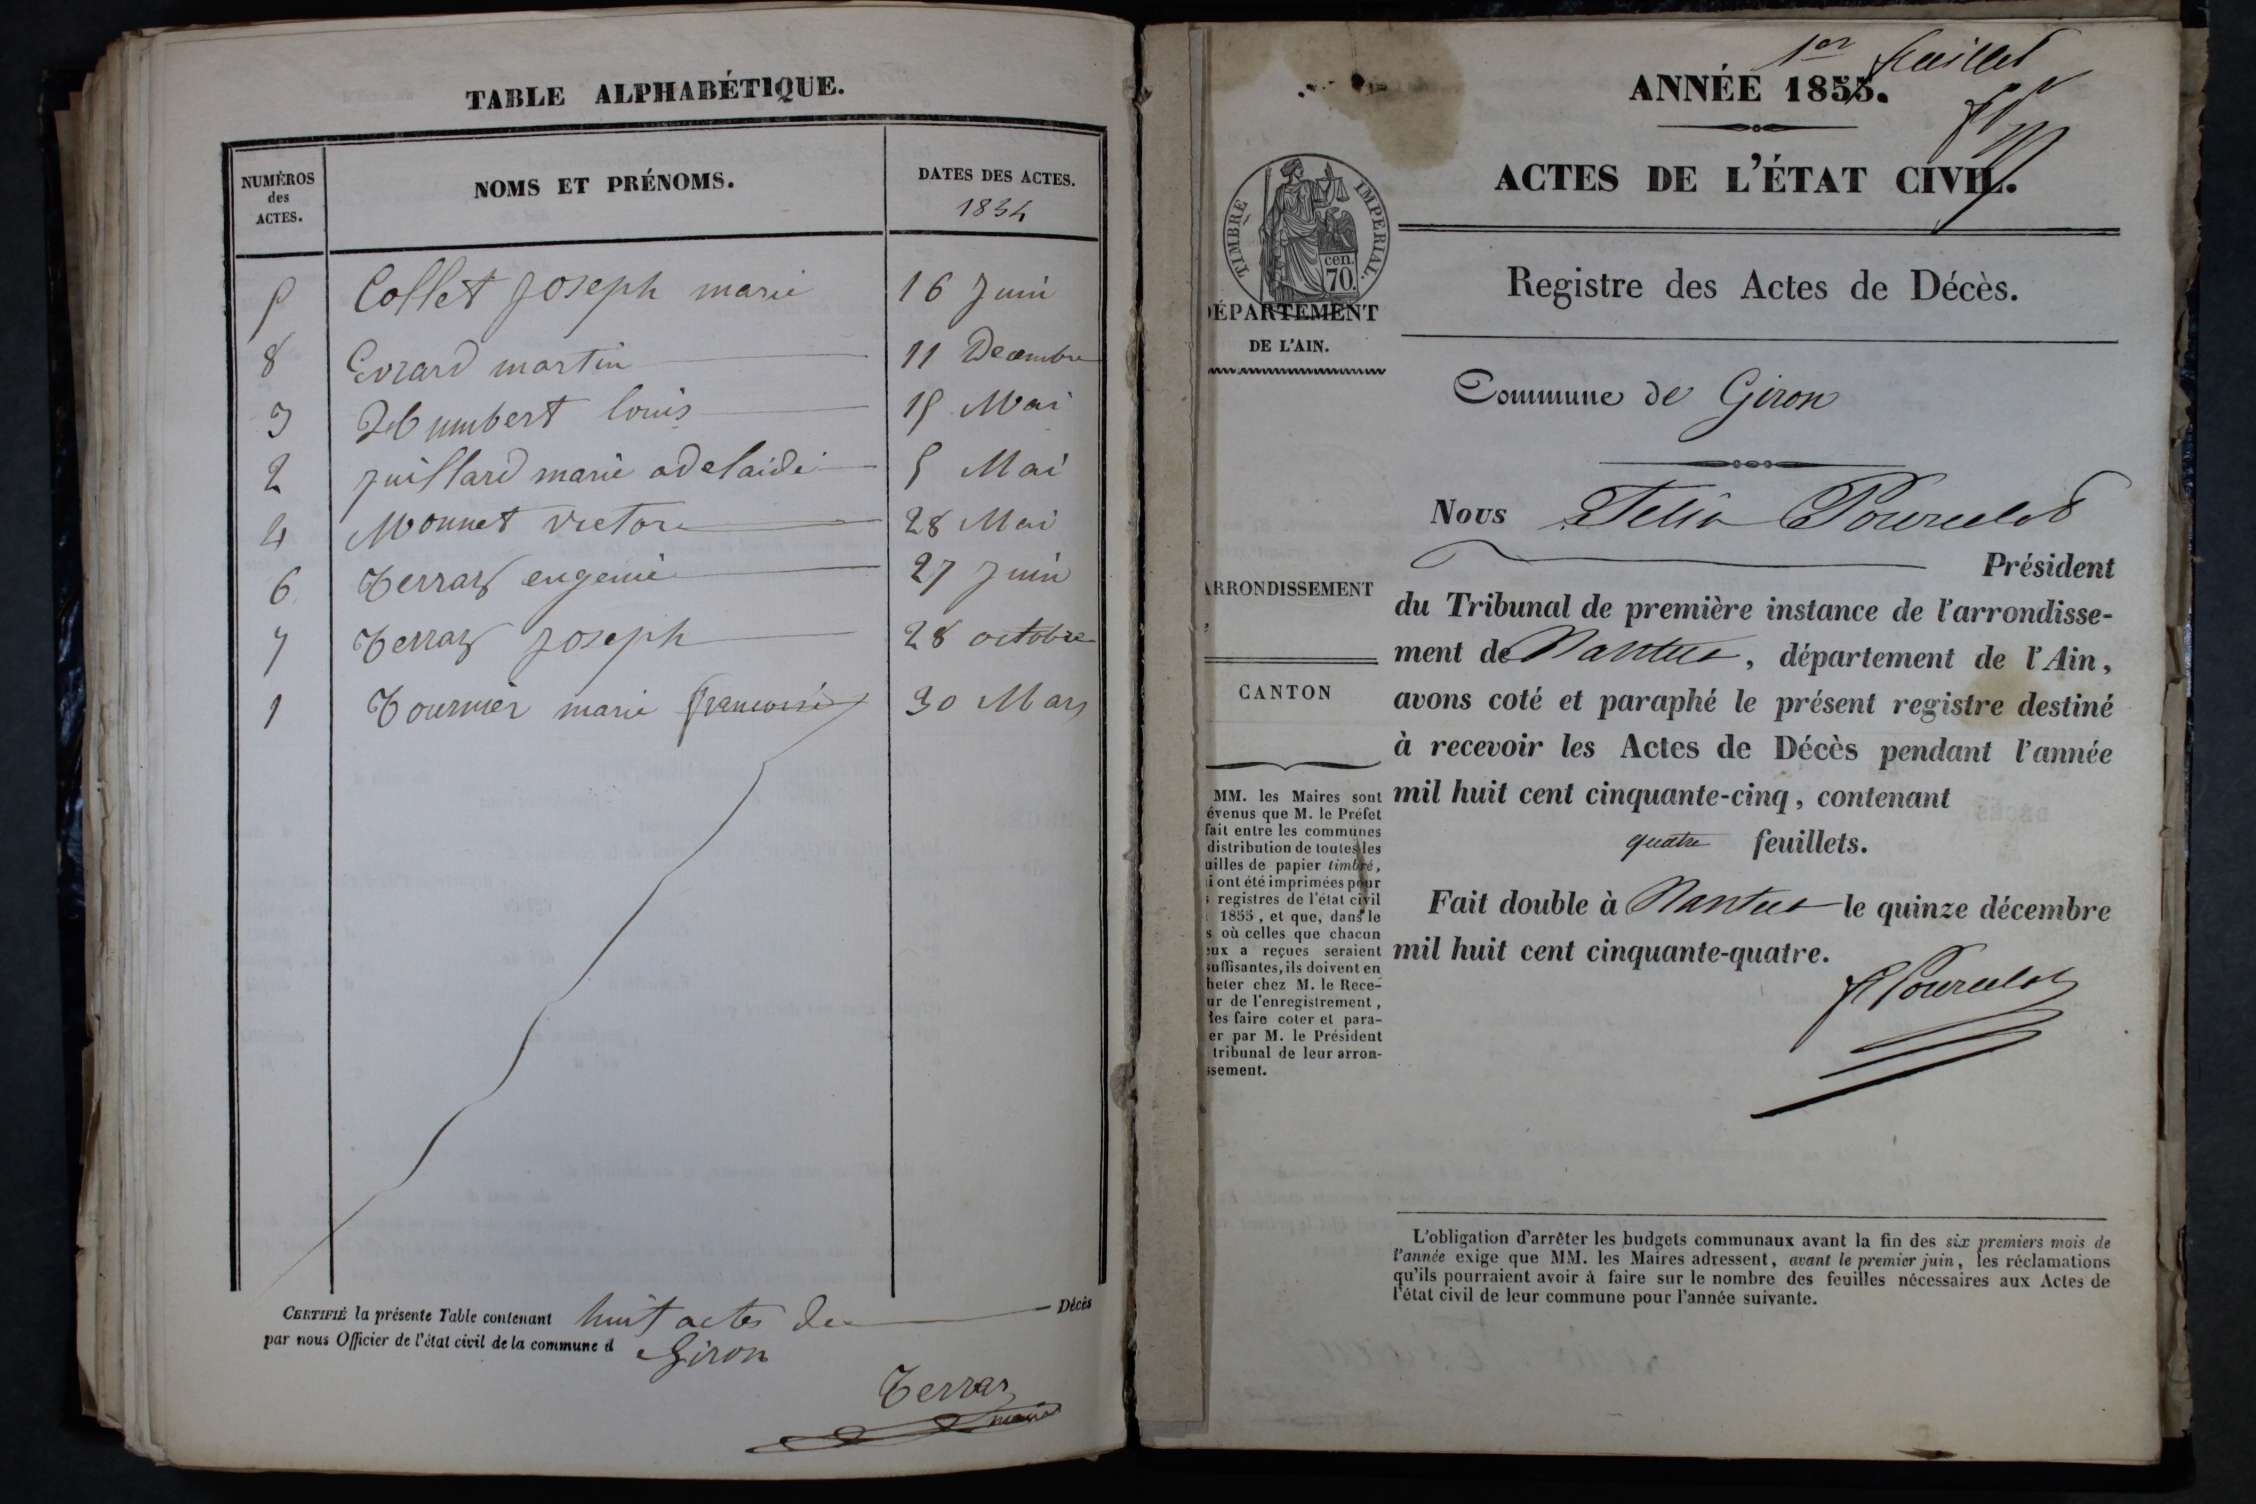 TABLE ALPHABÉTIQUE.
NUMÉROS des ACTES.
NOMS ET PRÉNOMS.
DATES DES ACTES.
1854
5 Collet Joseph marie 16 Juin
8 Evrard martin 11 Decembre
3 Humbert louis 15 Mai
2 Juillard marie adelaide 5 Mai
4 Monnet victor 28 Mai
6 Terraz eugenie 27 Juin
7 Terraz Joseph 28 octobre
1 Tournier marie francoise 30 Mars
CERTIFIÉ la présente Table contenant huit actes de Décès
par nous Officier de l'état civil de la commune d Giron
Terraz
maire
1er feuillet
ANNÉE 1855.
ACTES DE L'ÉTAT CIVIL.
TIMBRE IMPÉRIAL.
cen.
70.
Registre des Actes de Décès.
DÉPARTEMENT
DE L'AIN.
Commune de Giron
Nous Felix Pourcelot
Président
ARRONDISSEMENT
du Tribunal de première instance de l'arrondisse-
ment de Nantua, département de l'Ain,
CANTON
avons coté et paraphé le présent registre destiné
à recevoir les Actes de Décès pendant l'année
mil huit cent cinquante-cinq, contenant
quatre feuillets.
Fait double à Nantua le quinze décembre
mil huit cent cinquante-quatre.
F Pourcelot
MM. les Maires sont
évenus que M. le Préfet
fait entre les communes
distribution de toutes les
uilles de papier timbré,
i ont été imprimées pour
s registres de l'état civil
1855, et que, dans le
s où celles que chacun
eux a reçues seraient
suffisantes, ils doivent en
heter chez M. le Rece-
ur de l'enregistrement,
les faire coter et para-
er par M. le Président
tribunal de leur arron-
ssement.
L'obligation d'arrêter les budgets communaux avant la fin des six premiers mois de
l'année exige que MM. les Maires adressent, avant le premier juin, les réclamations
qu'ils pourraient avoir à faire sur le nombre des feuilles nécessaires aux Actes de
l'état civil de leur commune pour l'année suivante.